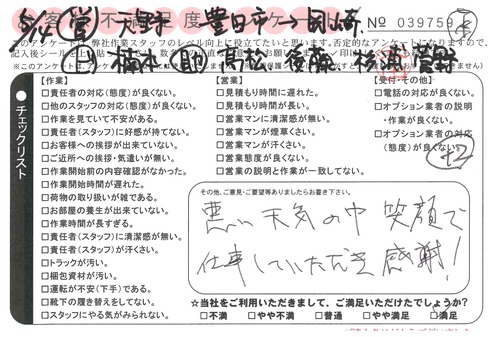 お客様不満足度アンケート
No 039759
5/14 営 天野 豊田市→岡崎
このアンケートは、弊社作業スタッフのレベル向上に役立てたいと思います。
上
【作業】
□責任者の対応(態度)が良くない。
□他のスタッフの対応(態度)が良くない。
□作業を見ていて不安がある。
□責任者(スタッフ)に好感が持てない。
□お客様への挨拶が出来ていない。
□ご近所への挨拶・気遣いが無い。
□作業開始前の内容確認がなかった。
□作業開始時間が遅れた。
□荷物の取り扱いが雑である。
□お部屋の養生が出来ていない。
□作業時間が長すぎる。
□責任者(スタッフ)に清潔感が無い。
□責任者(スタッフ)が汗くさい。
□トラックが汚い。
□梱包資材が汚い。
□運転が不安(下手)である。
□靴下の履き替えをしてない。
□スタッフにやる気がみられない。
【営業】
□見積もり時間に遅れた。
□見積もり時間が長い。
□営業マンに清潔感が無い。
□営業マンが煙草くさい。
□営業マンが汗くさい。
□営業態度が良くない。
□営業の説明と作業が一致してない。
【受付・その他】
□電話の対応が良くない。
□オプション業者の説明
・作業が良くない。
□オプション業者の対応
(態度)が良くない。
チェックリスト
その他、ご意見・ご要望等ありましたらお書き下さい。
悪い天気の中 笑顔で
仕事していただき感謝!
☆当社をご利用いただきまして、ご満足いただけたでしょうか?
□不満 □やや不満 □普通 □やや満足 □満足